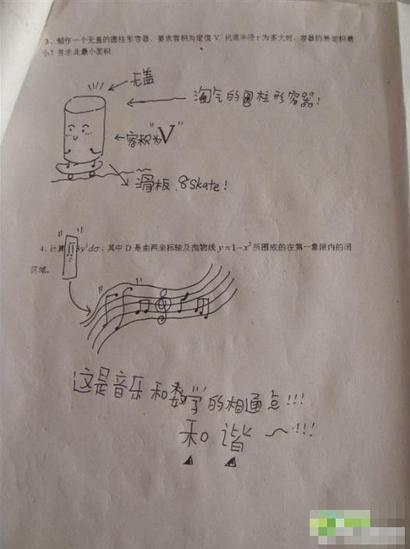 3、制作一个无盖的圆柱形容器，要求容积为定值 V，问底半径 r 为多大时，容器的表面积最
小？并求此最小面积
无盖
淘气的圆柱形容器！
容积为"V"
滑板 Skate！
4、计算 y²dσ，其中 D 是由两坐标轴及抛物线 y=1-x² 所围成的在第一象限内的闭
区域。
这是音乐和数学的相通点!!!
和谐~!!!